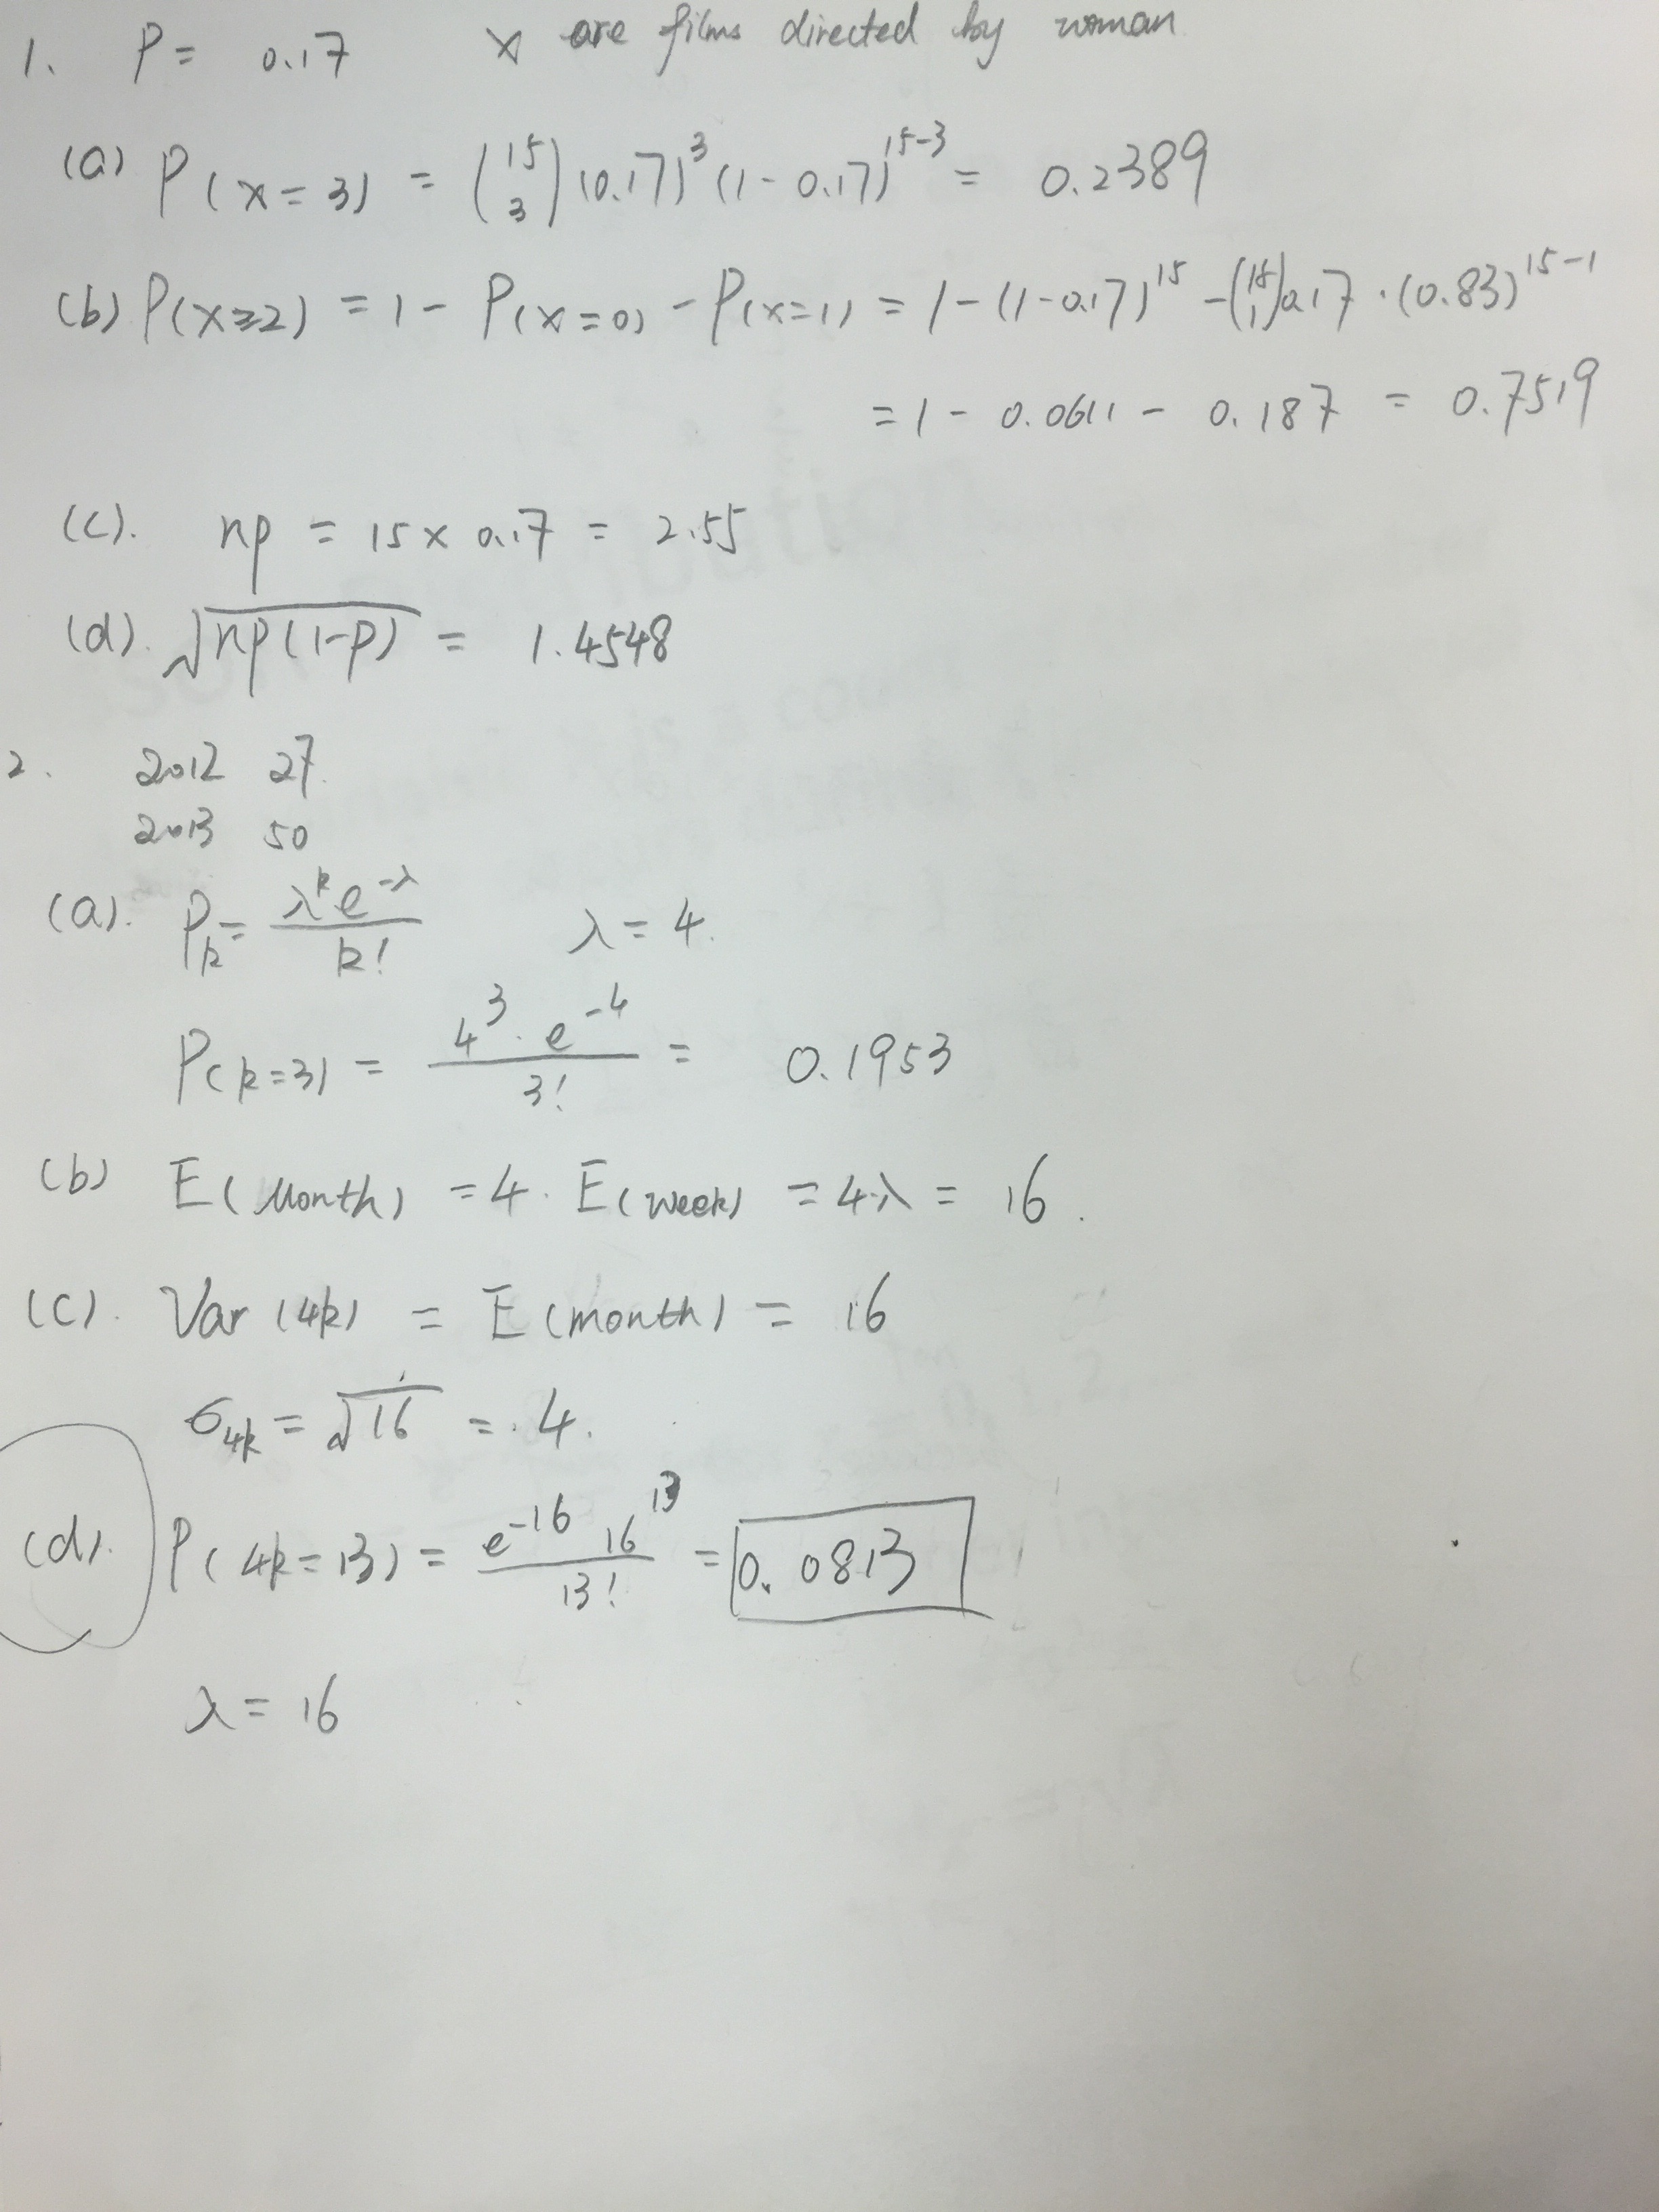 1. P = 0.17 X are films directed by woman
(a) P(x=3) = (15 3)(0.17)^3(1-0.17)^15-3 = 0.2389
(b) P(x≥2) = 1 - P(x=0) - P(x=1) = 1-(1-0.17)^15 -(15 1)0.17·(0.83)^15-1
= 1 - 0.0611 - 0.187 = 0.7519
(c). np = 15 × 0.17 = 2.55
(d). √np(1-p) = 1.4548
2. 2012 27.
2013 50
(a). P_k = λ^k e^-λ / k! λ = 4.
P(k=3) = 4^3 · e^-4 / 3! = 0.1953
(b) E(Month) = 4 · E(week) = 4·λ = 16.
(c). Var(4k) = E(month) = 16
σ_4k = √16 = 4.
(d). P(4k=13) = e^-16 16^13 / 13! = 0.0813
λ = 16